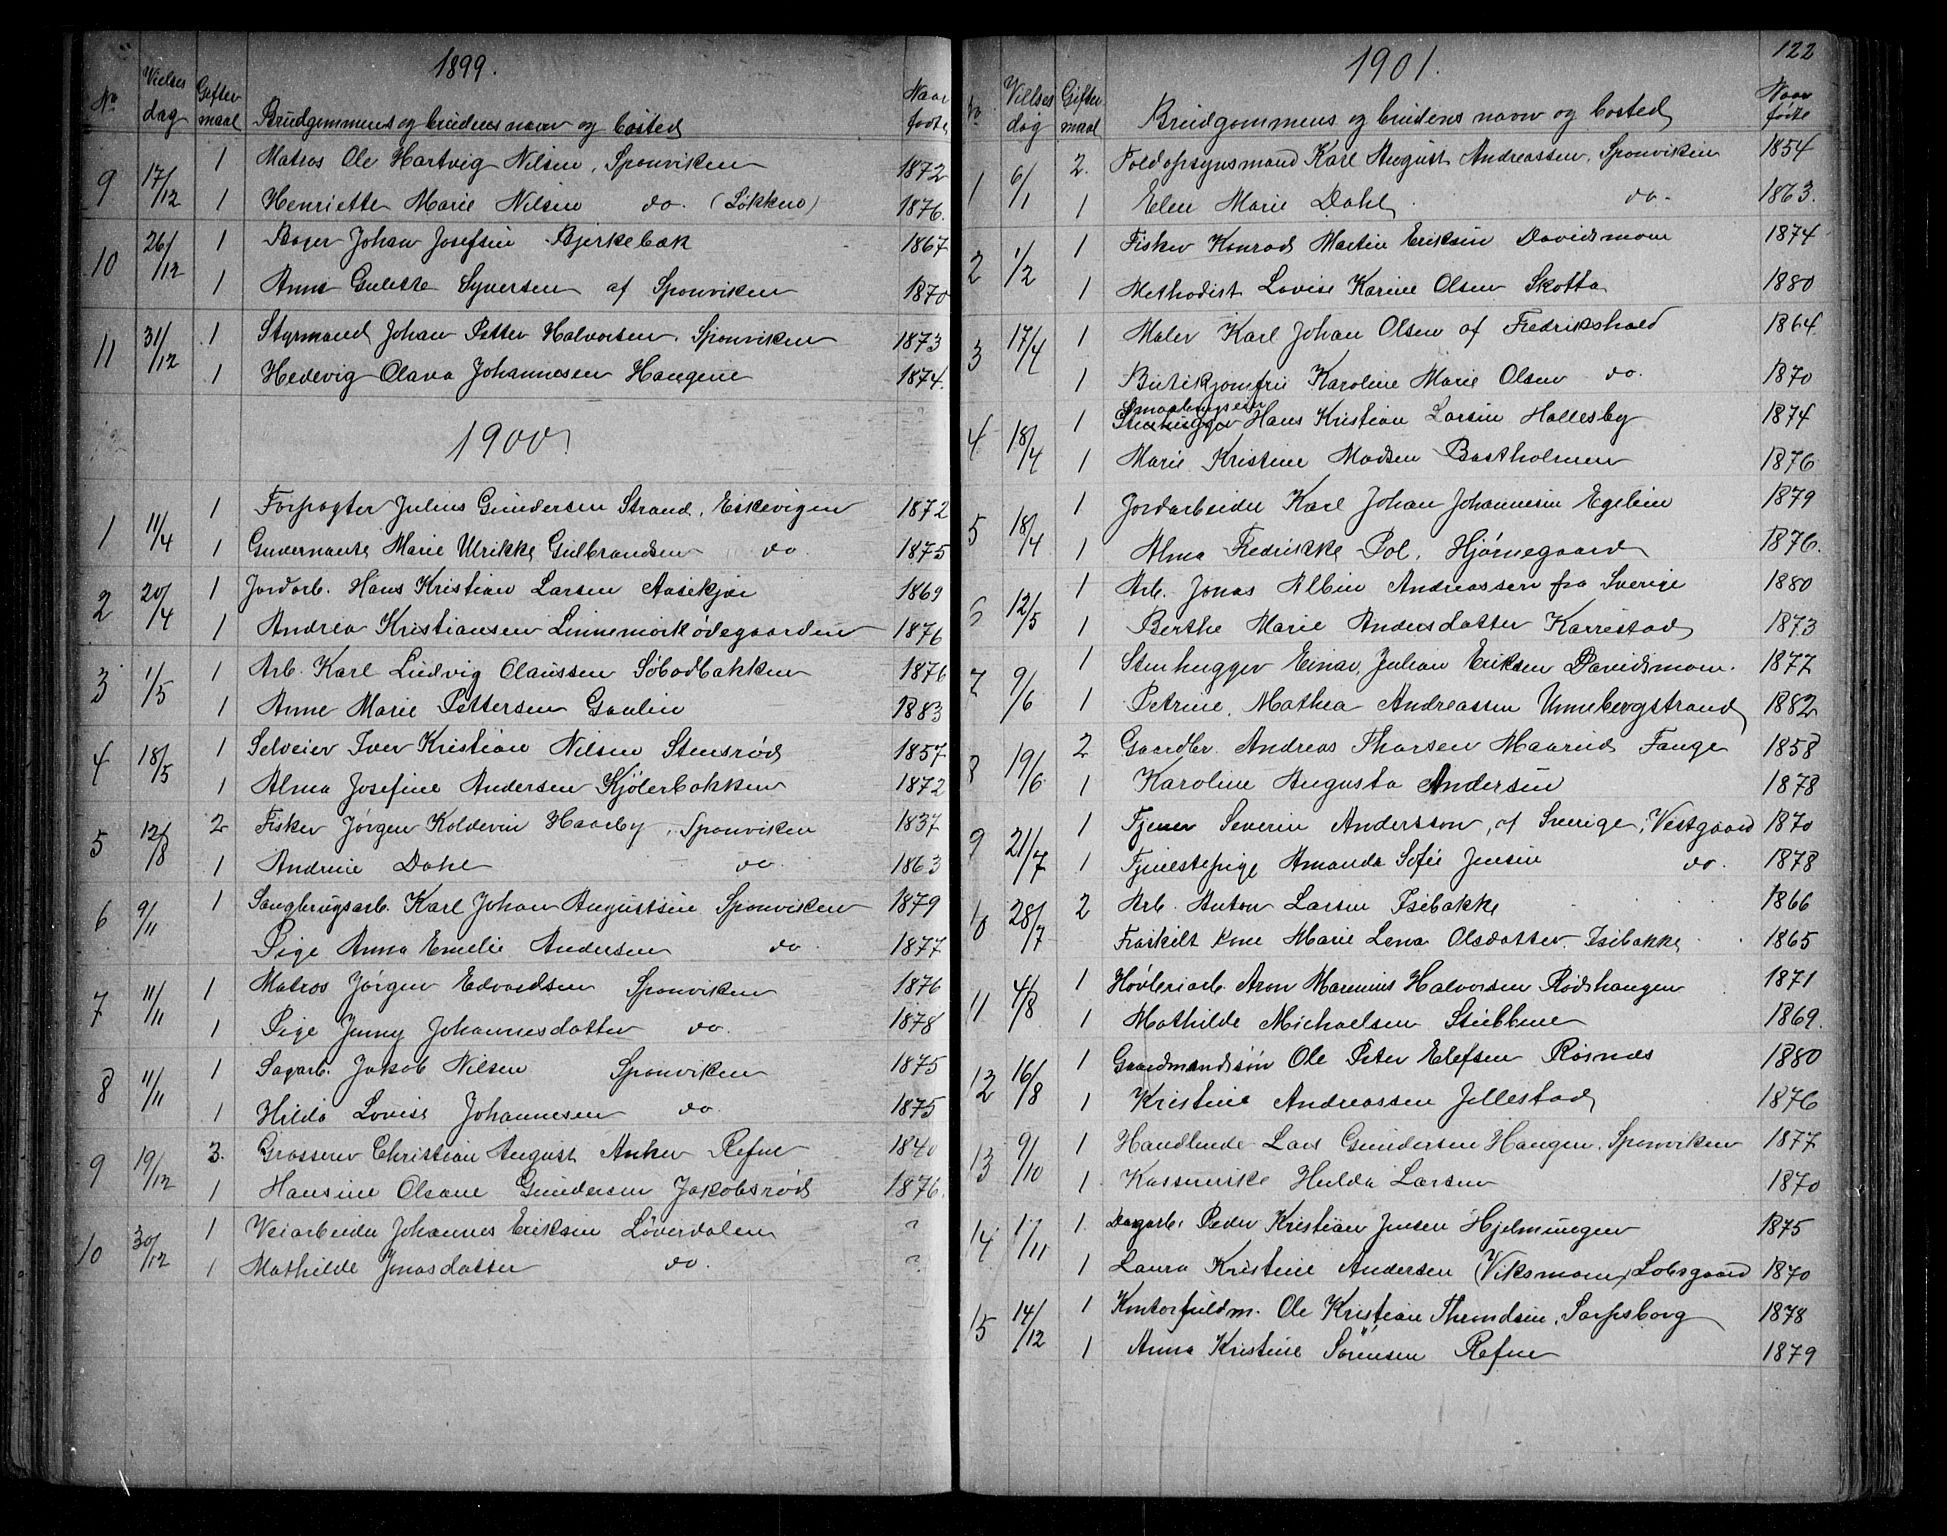 1899.
No Vielses dag Gifter maal Brudgommens og brudens navn og bosted Naar fødte
9 17/12 1 Matros Ole Hartvig Nilsen, Sponviken 1872
1 Henriette Marie Nilsen do. (Løkken) 1876.
10 26/12 1 Bager Johan Josefsen Bjerkebæk 1867
1 Anne Gulette Syversen af Sponviken 1870
11 31/12 1 Styrmand Johan Petter Halvorsen, Sponviken 1873
1 Hedevig Olava Johannesen Haugene 1874.
1900
1 11/4 1 Forpagter Julius Gundersen Strand, Eskevigen 1872
1 Guvernante Marie Ulrikke Gulbrandsen do. 1875
2 20/4 1 Jordarb. Hans Kristian Larsen Aasekjær 1869
1 Andrea Kristiansen Linnemarkødegaarden 1876
3 1/5 1 Arb. Karl Ludvig Claussen Søbodbakken 1876
1 Anne Marie Pettersen Gaulin 1883
4 18/5 1 Selveier Iver Kristian Nilsen Stensrød 1857
1 Alma Josefine Andersen Kjølerbakken 1872
5 12/8 2 Fisker Jørgen Kolderin Haarby, Sponviken 1837
1 Andrine Dahl do. 1863
6 9/11 1 Saugbrugsarb. Karl Johan Augustsen Sponviken 1879
Pige Anna Emelie Andersen do. 1877
7 11/11 1 Matros Jørgen Edvardsen Sponviken 1876
1 Pige Jenny Johannesdatter do. 1878
8 11/11 1 Sagarb. Jakob Nilsen Sponviken 1875
1 Hilda Lovise Johannesen do. 1875
9 19/12 3. Grosserer Christian August Anker Refne 1840
1 Hansine Olsine Gundersen Jakobsrød 1876.
10 30/12 1 Veiarbeider Johannes Eriksen Løverdalen ?
1 Mathilde Jonasdatter do. ?
122
1901.
No Vielses dag Gifter maal Brudgommens og brudens navn og bosted Naar fødte
1 6/1 2. Toldopsynsmand Karl August Andreassen, Sponviken 1854
1 Elen Marie Dahl do. 1863.
2 1/2 1 Fisker Konrad Martin Eriksen Davidsmoen 1874
1 Methodist Lovise Karine Olsen Skotta 1880
3 17/4 1 Maler Karl Johan Olsen af Fredrikshald 1864.
1 Butikjomfru Karoline Marie Olsen do. 1870
4 18/4 1 Hans Kristian Larsen Hallesby 1874
1 Marie Kristine Madsen Bastholmen 1876
5 18/4 1 Jordarbeider Karl Johan Johannesen Egelien 1879
1 Alma Fredrikke Pol. Hjørnegaard 1876.
6 12/5 1 Arb. Jonas Albin Andreassen fra Sverige 1880
1 Berthe Marie Andersdatter Karrestad 1873
7 9/6 1 Stenhugger Einar Julian Eriksen Davidsmoen. 1877
1 Petrine Mathea Andreassen Unnebergstrand 1882
8 19/6 2 Gaardbr. Andreas Thorsen Maarud Fange 1858
1 Karoline Augusta Andersen 1878
9 21/7 1 Tjener Severin Andersson, af Sverige, Vestgaard 1870
1 Tjenestepige Amanda Sofie Jensen do. 1878
10 28/7 2 Arb. Anton Larsen Isebakke 1866
Fraskilt kone Marie Lena Olsdatter Isebakke 1865
11 4/8 1 Høvleriarb. Aron Marenius Halvorsen Rødshaugen 1871
1 Mathilde Michaelsen Stubbene 1869.
12 16/8 1 Gaardmandssøn Ole Peter Elefsen Røsnæs 1880
1 Kristine Andreassen Jellestad 1876
13 9/10 1 Handlende Lars Gundersen Haugen, Sponviken 1877
1 Hulda Larsen 1870
14 1/11 1. Dagarb. Peder Kristian Jensen Hjelmungen 1875
1 Laura Kristine Andersen (Viksmoen) Lobsgaard 1870
15 14/12 1 Kontorfuldm. Ole Kristian Throndsen, Sarpsborg 1878
1 Anna Kristine Sørensen Refne 1879